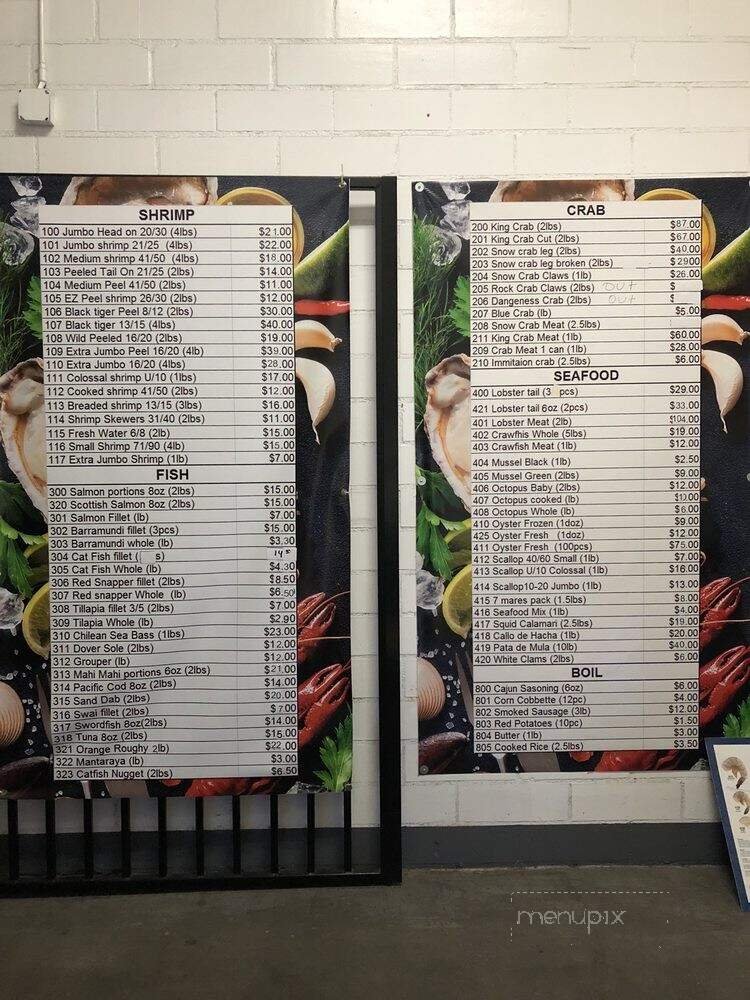 SHRIMP
100 Jumbo Head on 20/30 (4lbs) $21.00
101 Jumbo shrimp 21/25 (4lbs) $22.00
102 Medium shrimp 41/50 (4lbs) $18.00
103 Peeled Tail On 21/25 (2lbs) $14.00
104 Medium Peel 41/50 (2lbs) $11.00
105 EZ Peel shrimp 26/30 (2lbs) $12.00
106 Black tiger Peel 8/12 (2lbs) $30.00
107 Black tiger 13/15 (4lbs) $40.00
108 Wild Peeled 16/20 (2lbs) $19.00
109 Extra Jumbo Peel 16/20 (4lb) $39.00
110 Extra Jumbo 16/20 (4lbs) $28.00
111 Colossal shrimp U/10 (1lbs) $17.00
112 Cooked shrimp 41/50 (2lbs) $12.00
113 Breaded shrimp 13/15 (3lbs) $16.00
114 Shrimp Skewers 31/40 (2lbs) $11.00
115 Fresh Water 6/8 (2lb) $15.00
116 Small Shrimp 71/90 (4lb) $15.00
117 Extra Jumbo Shrimp (1lb) $7.00
FISH
300 Salmon portions 8oz (2lbs) $15.00
320 Scottish Salmon 8oz (2lbs) $15.00
301 Salmon Fillet (lb) $7.00
302 Barramundi fillet (3pcs) $15.00
303 Barramundi whole (lb) $3.30
304 Cat Fish fillet ( s)
305 Cat Fish Whole (lb) $4.30
306 Red Snapper fillet (2lbs) $8.50
307 Red snapper Whole (lb) $6.50
308 Tillapia fillet 3/5 (2lbs) $7.00
309 Tilapia Whole (lb) $2.90
310 Chilean Sea Bass (1lbs) $23.00
311 Dover Sole (2lbs) $12.00
312 Grouper (lb) $12.00
313 Mahi Mahi portions 6oz (2lbs) $21.00
314 Pacific Cod 8oz (2lbs) $14.00
315 Sand Dab (2lbs) $20.00
316 Swai fillet (2lbs) $7.00
317 Swordfish 8oz(2lbs) $14.00
318 Tuna 8oz (2lbs) $15.00
321 Orange Roughy 2lb) $22.00
322 Mantaraya (lb) $3.00
323 Catfish Nugget (2lbs) $6.50
CRAB
200 King Crab (2lbs) $87.00
201 King Crab Cut (2lbs) $67.00
202 Snow crab leg (2lbs) $40.00
203 Snow crab leg broken (2lbs) $2900
204 Snow Crab Claws (1lb) $26.00
205 Rock Crab Claws (2lbs) OUT $
206 Dangeness Crab (2lbs) OUT $
207 Blue Crab (lb) $5.00
208 Snow Crab Meat (2.5lbs)
211 King Crab Meat (1lb) $60.00
209 Crab Meat 1 can (1lb) $28.00
210 Immitaion crab (2.5lbs) $6.00
SEAFOOD
400 Lobster tail (3 pcs) $29.00
421 Lobster tail 6oz (2pcs) $33.00
401 Lobster Meat (2lb) $104.00
402 Crawfhis Whole (5lbs) $19.00
403 Crawfish Meat (1lb) $12.00
404 Mussel Black (1lb) $2.50
405 Mussel Green (2lbs) $9.00
406 Octopus Baby (2lbs) $12.00
407 Octopus cooked (lb) $10.00
408 Octopus Whole (lb) $6.00
410 Oyster Frozen (1doz) $9.00
425 Oyster Fresh (1doz) $12.00
411 Oyster Fresh (100pcs) $75.00
412 Scallop 40/60 Small (1lb) $7.00
413 Scallop U/10 Colossal (1lb) $16.00
414 Scallop10-20 Jumbo (1lb) $13.00
415 7 mares pack (1.5lbs) $8.00
416 Seafood Mix (1lb) $4.00
417 Squid Calamari (2.5lbs) $19.00
418 Callo de Hacha (1lb) $20.00
419 Pata de Mula (10lb) $40.00
420 White Clams (2lbs) $6.00
BOIL
800 Cajun Sasoning (6oz) $6.00
801 Corn Cobbette (12pc) $4.00
802 Smoked Sausage (3lb) $12.00
803 Red Potatoes (10pc) $1.50
804 Butter (1lb) $3.00
805 Cooked Rice (2.5lbs) $3.50
menupix